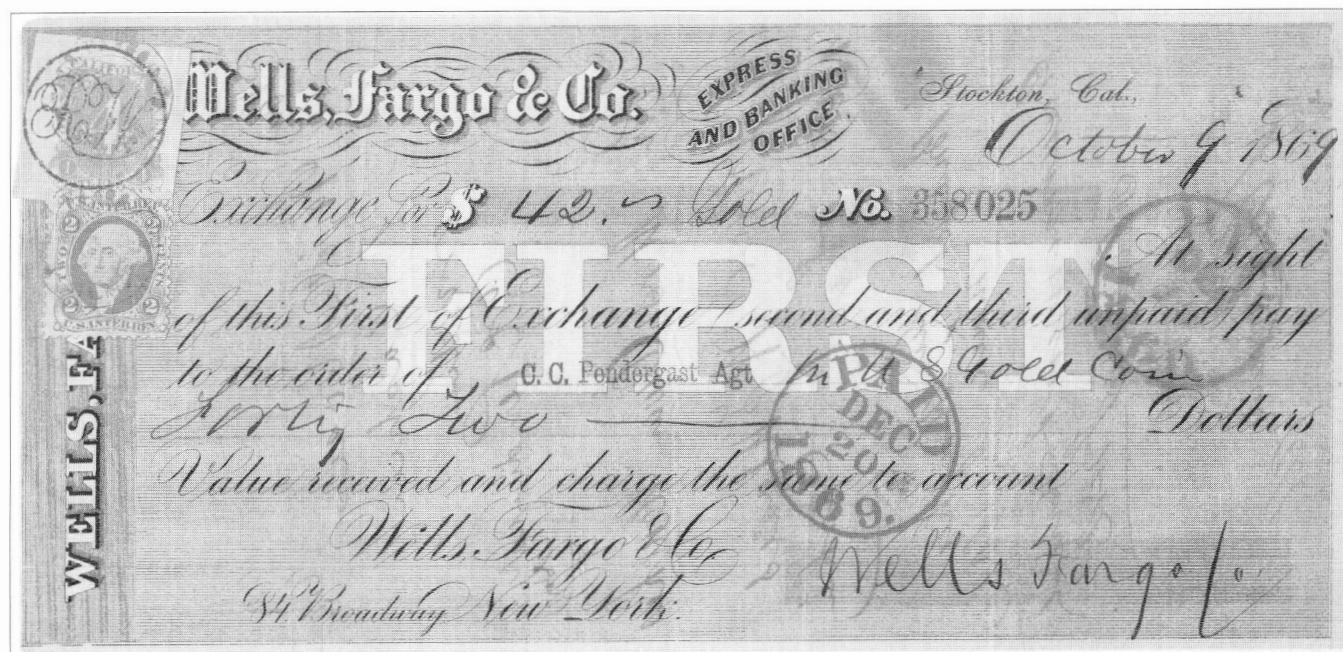 Wells, Fargo & Co.
EXPRESS
AND BANKING
OFFICE.
Stockton, Cal.,
October 9 1869
Exchange for $ 42. Gold No. 358025
FIRST
At sight
of this First of Exchange (second and third unpaid) pay
to the order of C. C. Pendergast Agt in U S Gold Coin
Forty Two Dollars
Value received and charge the same to account
Wells, Fargo & Co
84 Broadway New York.
Wells Fargo Co
PAID
DEC
20
1869.
CALIFOR
U.S. INTER. REV.
TWO CENTS
2 2
2 2
WELLS, FA